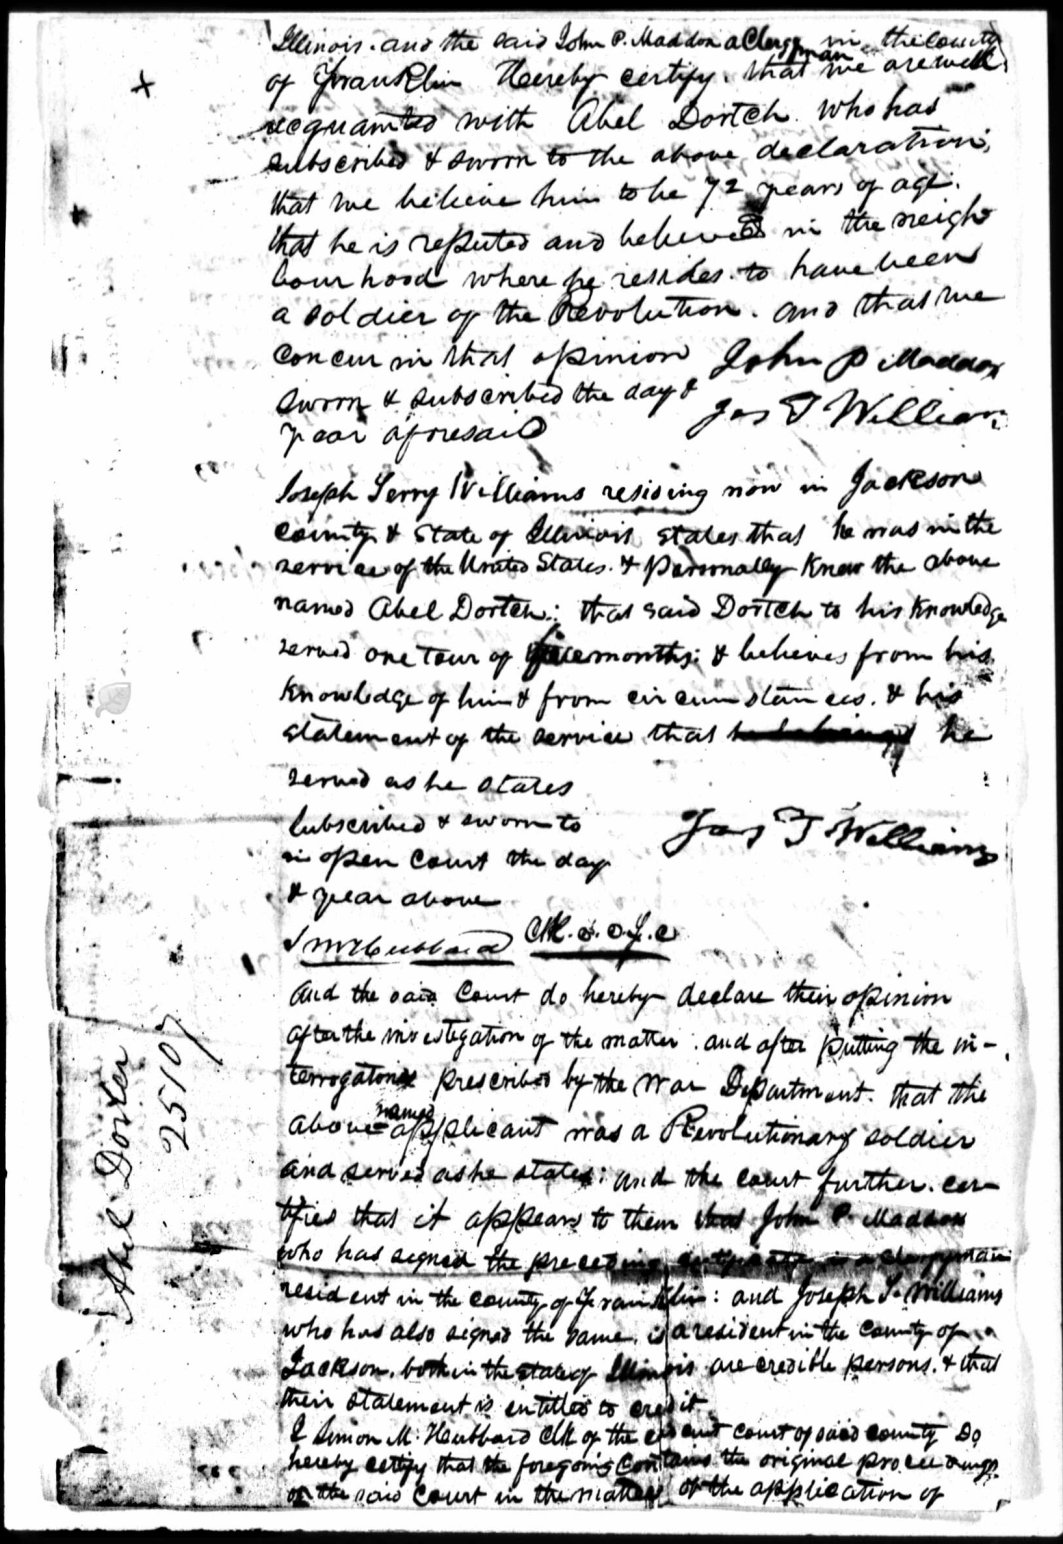 Illinois. and the said John P. Maddox a Clergyman in the county
of Franklin Hereby certify. that we are well
acquainted with Abel Dortch who has
subscribed & sworn to the above declaration,
that we believe him to be 72 years of age.
that he is reputed and believed in the neigh
bourhood where he resides. to have been
a soldier of the Revolution. and that we
concur in that opinion John P Maddox
sworn & subscribed the day &
year aforesaid
Jos T William
Joseph Terry Williams resising now in Jackson
county & State of Illinois states that he was in the
service of the United States. & personally knew the above
named Abel Dortch: that said Dortch to his knowledge
served one tour of months: & believes from his
knowledge of him & from circumstances. & his
statement of the service that he
served as he states
Subscribed & sworn to
in open court the day
& year above
Jos T Williams
S M Hubbard Clk.
And the said Court do hereby declare their opinion
after the investegation of the matter. and after putting the in-
terrogatories prescribed by the War Department. that the
above named applicant was a Revolutionary soldier
and served as he states: and the court further. cer
tifies that it appears to them that John P. Maddox
who has signed the preceding certificate is a clergyman
resident in the county of Franklin: and Joseph T. Williams
who has also signed the same. is a resident in the County of
Jackson. both in the state of Illinois are credible persons. & that
their statement is entitled to credit
I Simon M. Hubbard Clk of the circuit court of said county Do
hereby certify that the foregoing contains the original proceedings
of the said court in the matter of the application of
Abel Dorter
25107